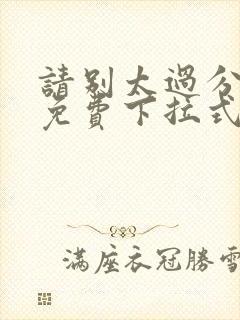 請別太過分
免費下拉式
滿座衣冠勝雪